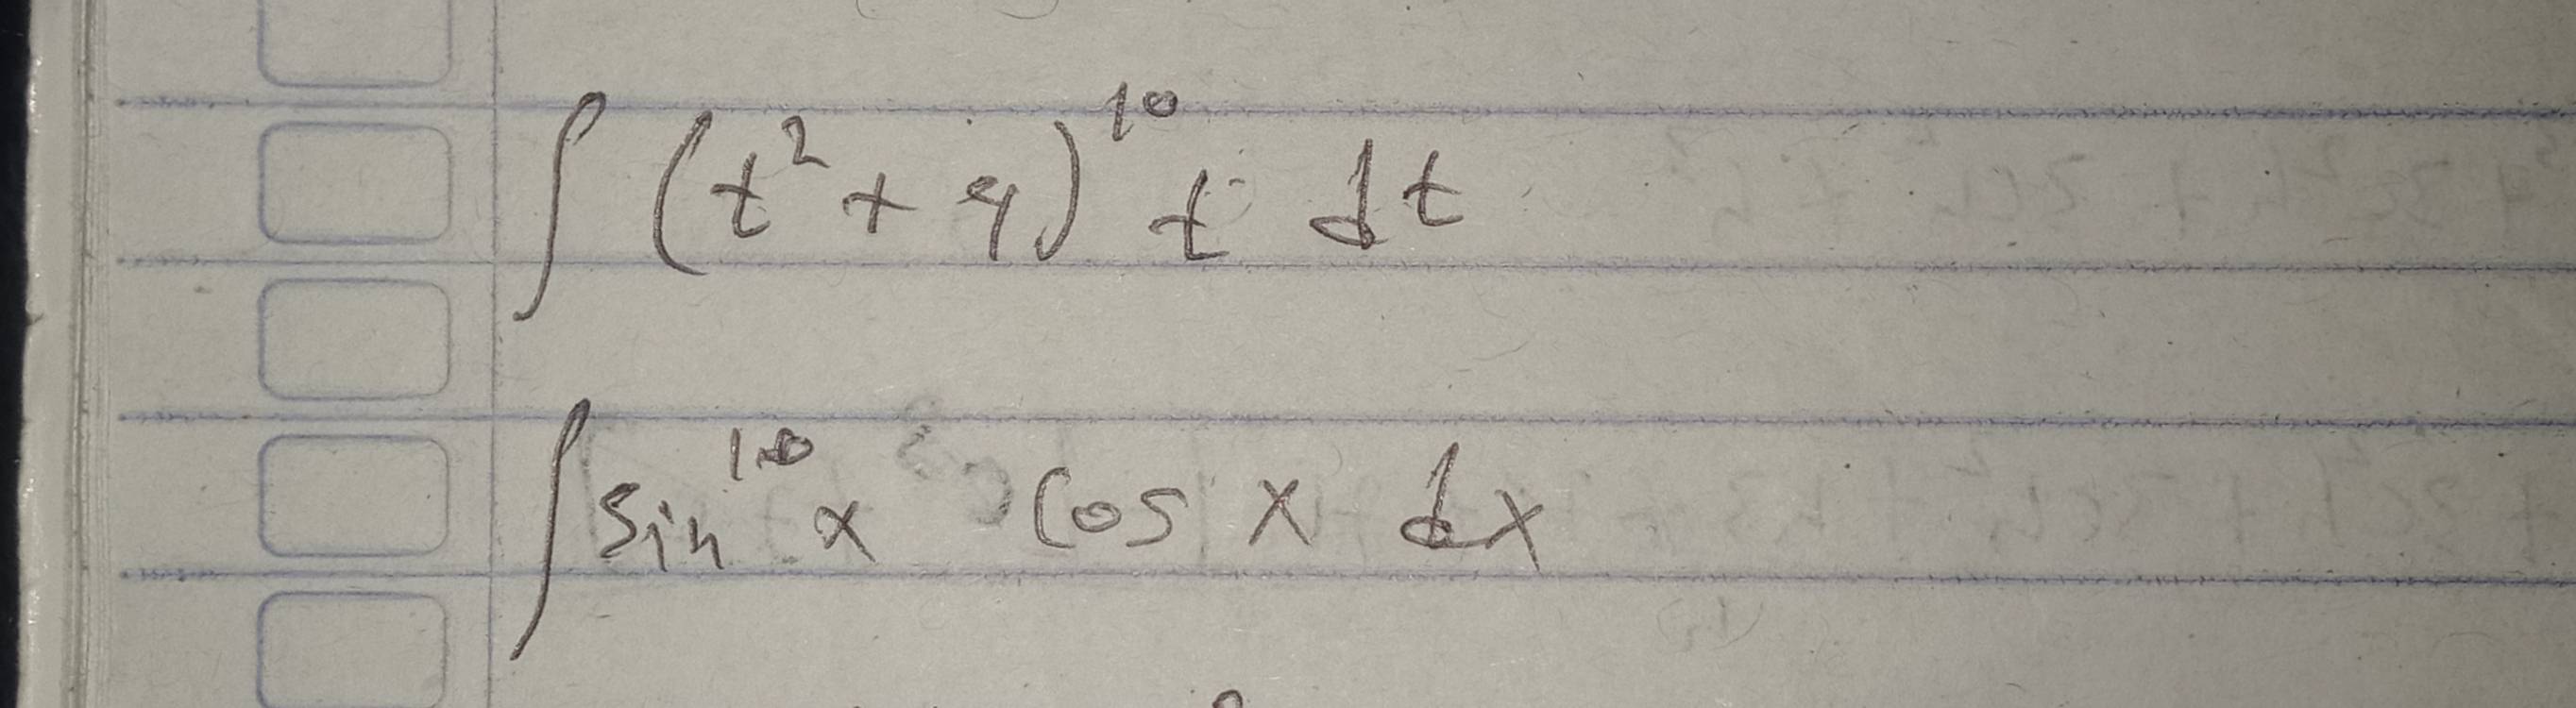 ∫ (t² + 4)¹⁰ t dt
∫ sin¹⁰ x cos x dx